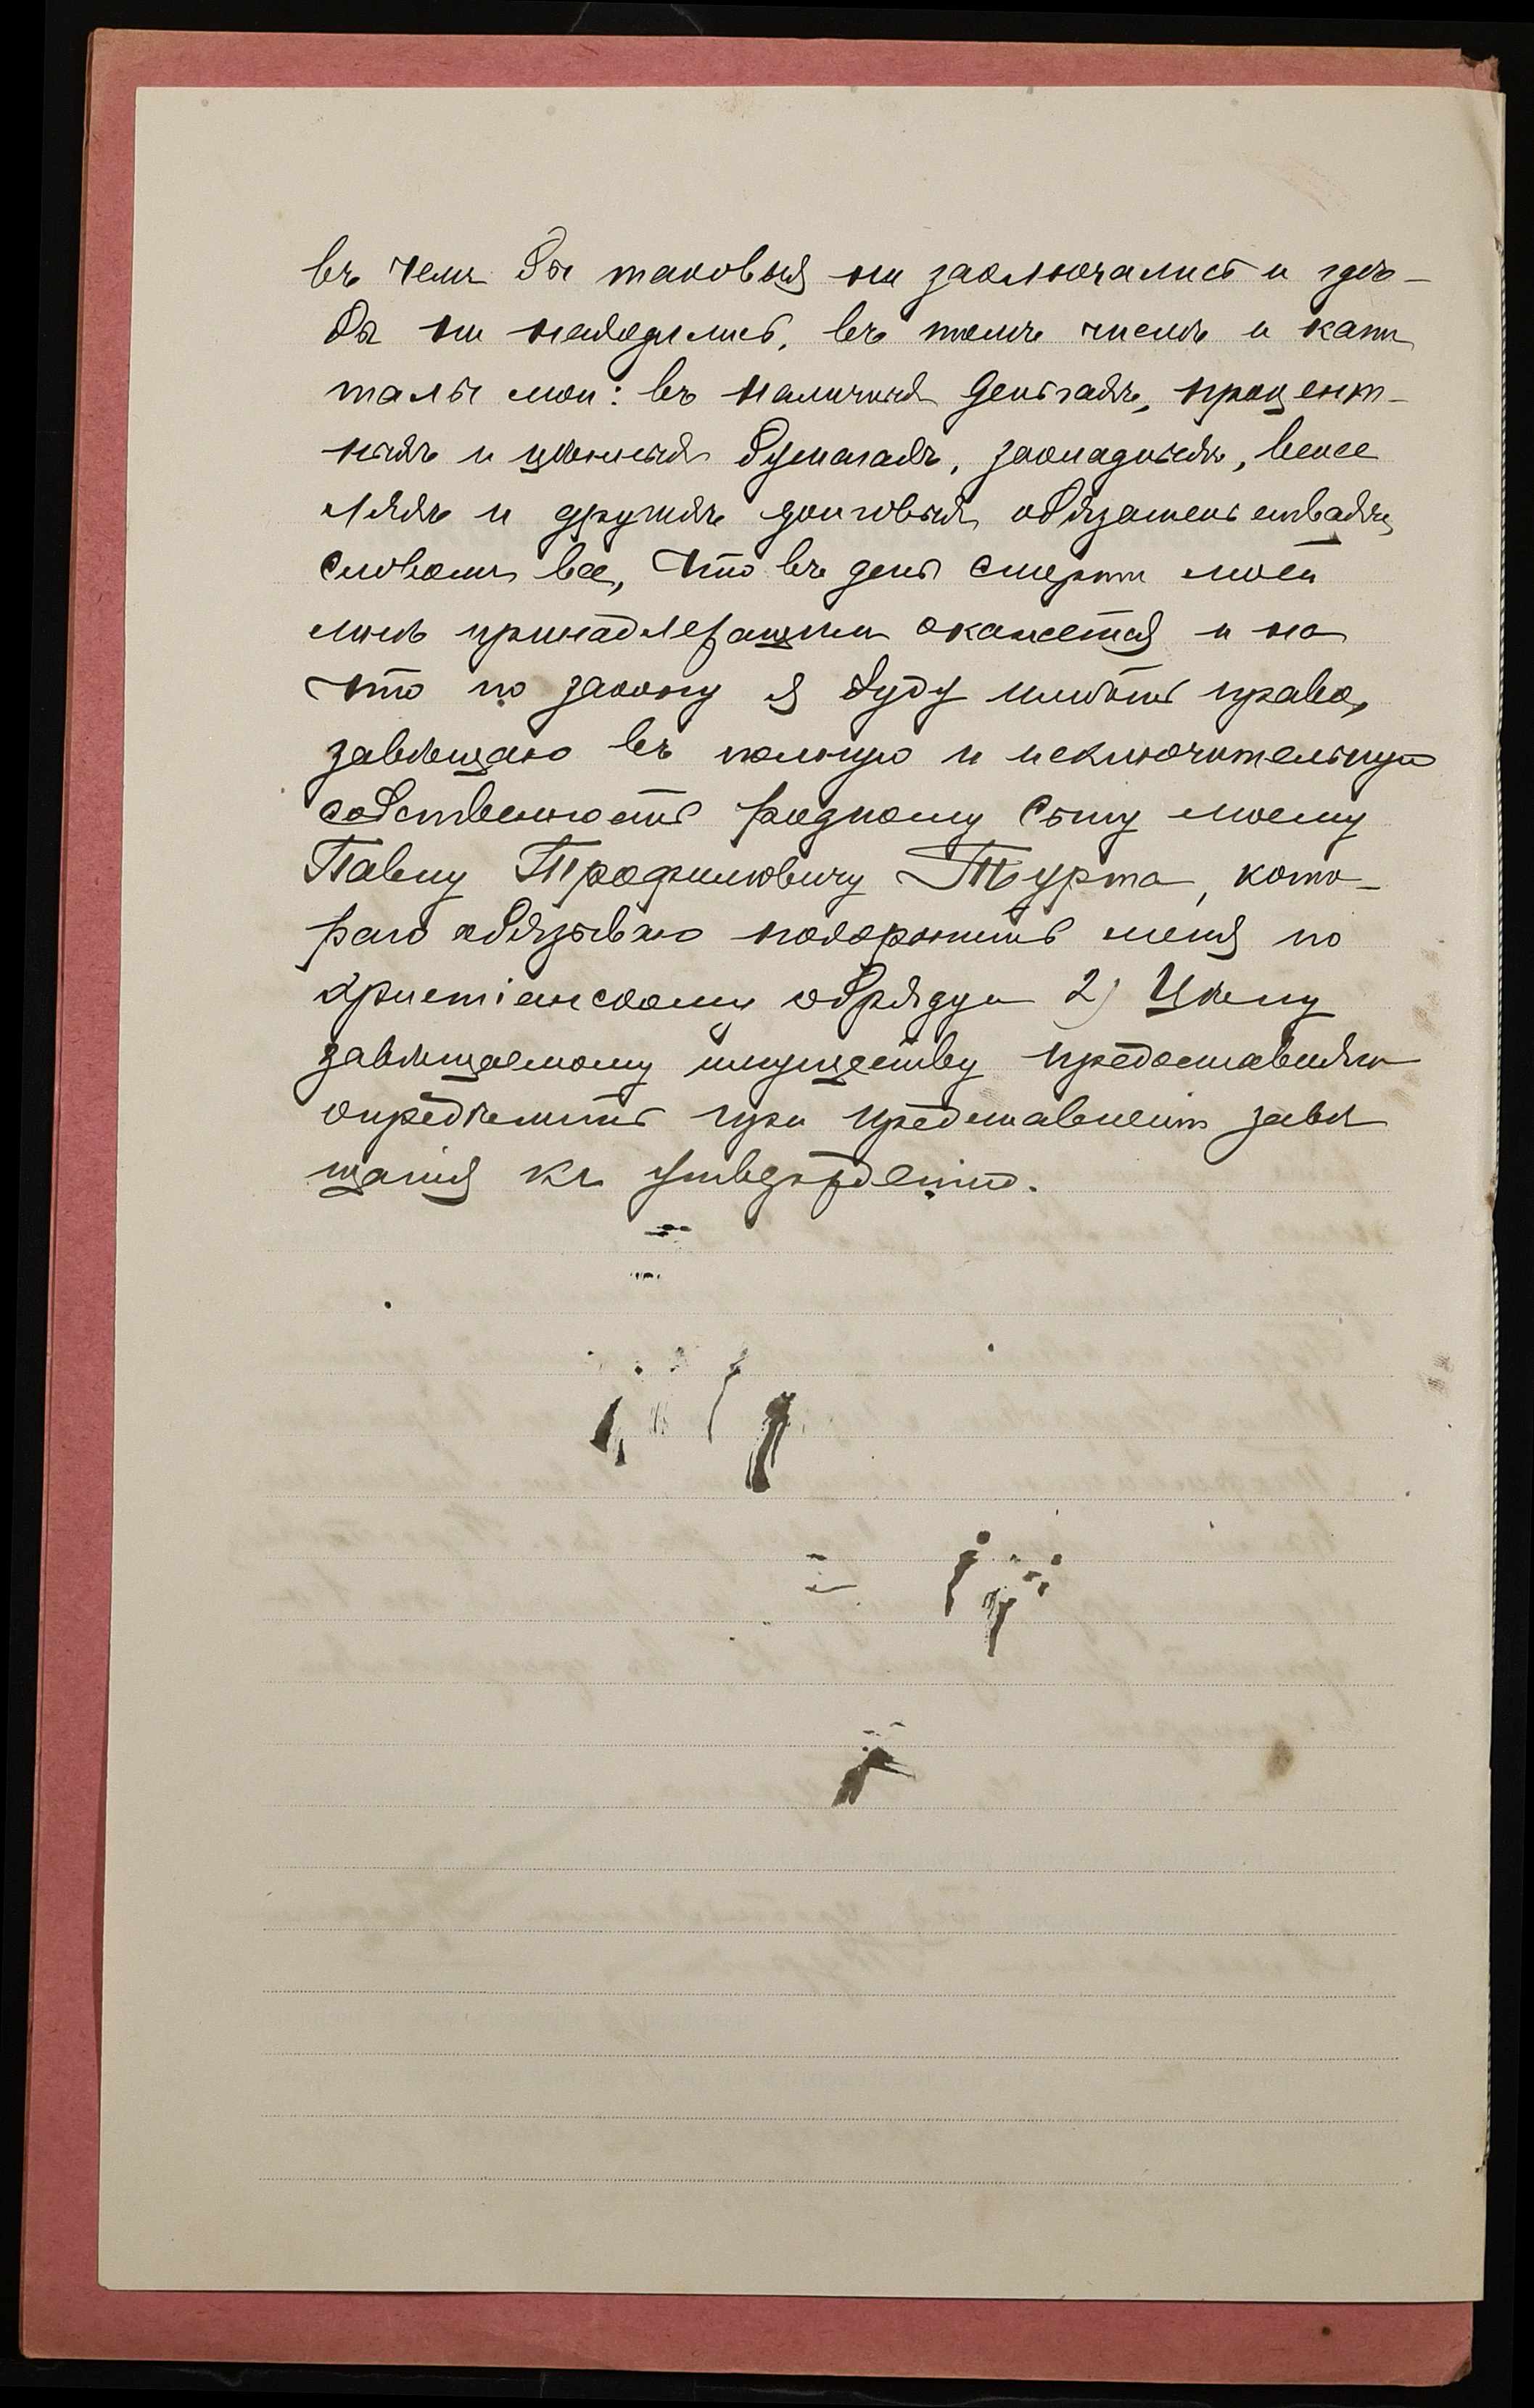 въ чемъ бы таковыя ни заключались и гдѣ-
бы ни находились, въ томъ числѣ и капи
талы мои: въ наличныхъ деньгахъ, процент-
ныхъ и цѣнныхъ бумагахъ, закладныхъ, вексе
ляхъ и другихъ долговыхъ обязательствахъ,
словомъ все, что въ день смерти моей
мнѣ принадлежащимъ окажется и на
что по закону я буду имѣть право,
завѣщаю въ полную и исключительную
собственность родному сыну моему
Павлу Трофимовичу Турта, кото-
раго обязываю похоронить меня по
христіанскому обряду и 2) Цѣну
завѣщаемому имуществу предоставляю
опредѣлить при представленіи завѣ
щанія къ утвержденію.